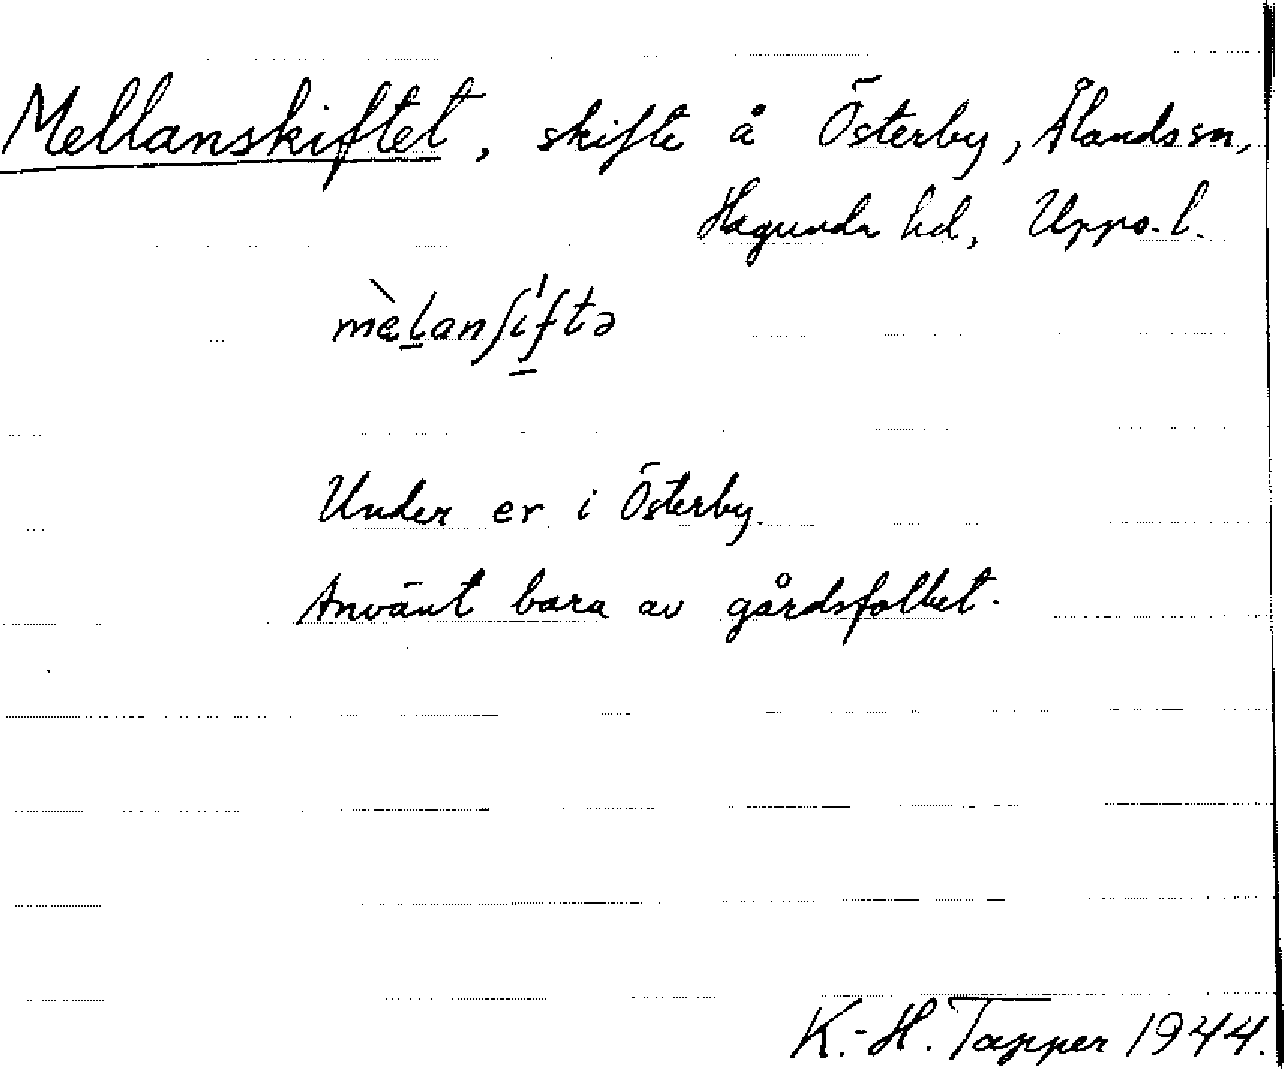 Mellanskiftet, skifte å Österby, Ålands sn,
Hagunda hd, Upps. l.
mèlanʃiftə
Under er i Österby.
Använt bara av gårdsfolket.
K.-H. Tapper 1944.